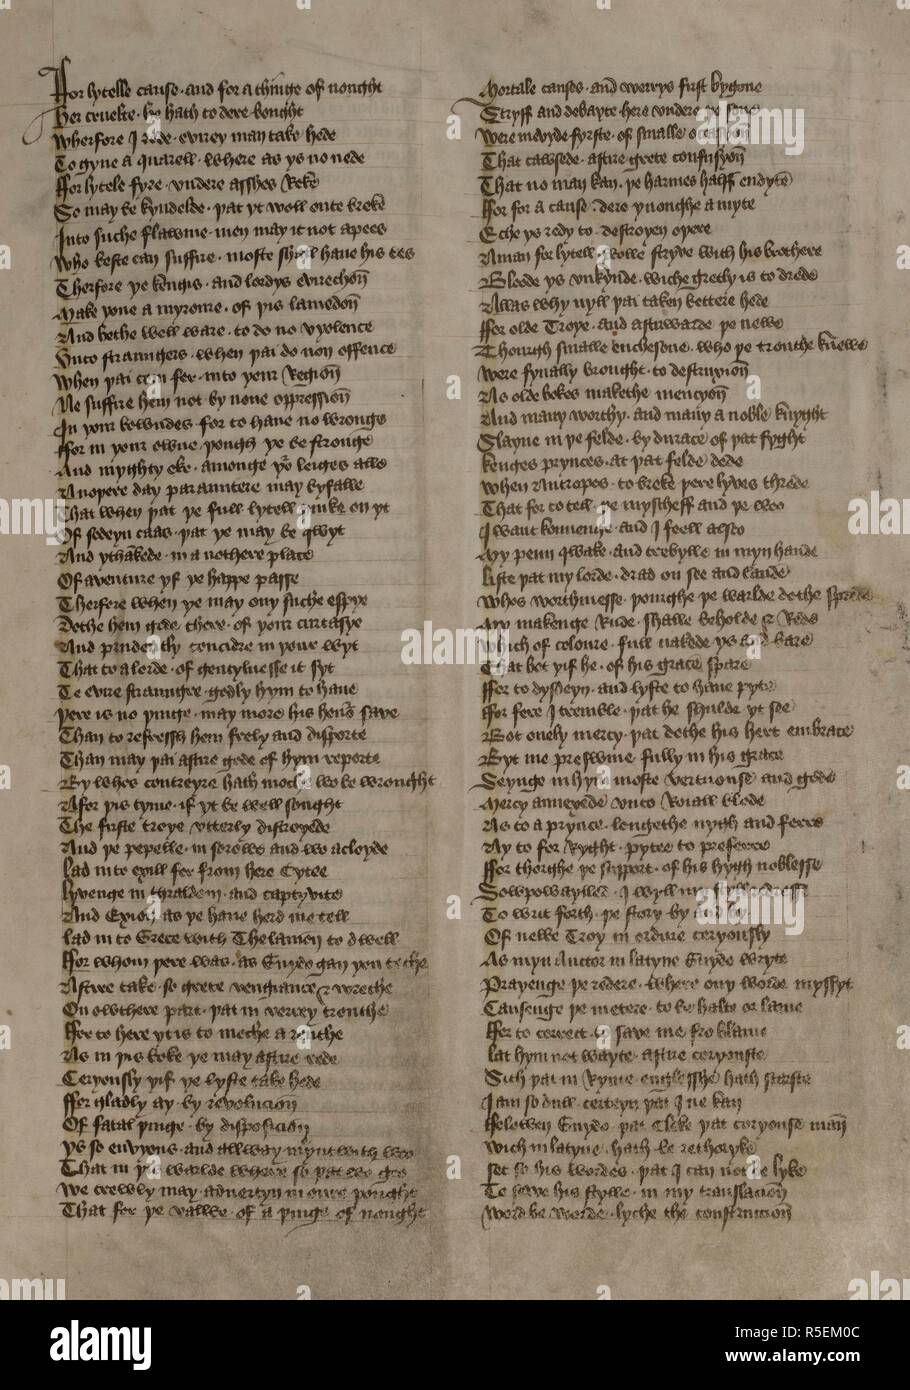 For lytelle cause · and for a thinge of nought
Her cruelte · he hath to dere bought
Wherfore I rede · every man take hede
To gyne a quarell · where as ys no nede
ffor lytele fyre · undere asshes Reke
So may be kyndelde · þat yt woll oute breke
Into suche flawme · men may it not apees
Who beste can suffire · moste shall have his ees
Therfore ye kengis · and lordys evirechon
Make yone a myrome · of þis lamedon
And bethe well ware · to do no vyolence
Unto straungers · when þai do non offence
When þai com fer · into your Region
Ne suffire hem not by none oppression
In your bowndes for to have no wronge
ffor in your owne · þough ye be stronge
And myghty eke · amonge your leiges alle
Anoþere day parauntere may byfalle
That when þat ye full lytell þinke on yt
Of sodeyn caas · þat ye may be qwyt
And ythankede · in a nothere place
Of aventure yf ye happe passe
Therfore when ye may ony suche espye
Dethe hem gode there · of your curtasye
And prudently concidre in your wyt
That to a lorde · of gentylnesse it syt
To evire straungre godly hym to have
þere is no þinge · may more his honur save
Than to refressh hem frely and disporte
Than may þai aftire gode of hym reporte
By whos contreyre hath moche wo be wrought
Afor þis tyme · if yt be well sought
The firste troye utterly distroyede
And þe pepelle · in sorowe and wo acloyde
Lad into exill fer from here Cytee
Lyvenge in thraldem · and captyvite
And Exion as ye have herd me tell
Lad in to Grece with Thelamon to dwell
ffor whom þere was · as Guydo gan you teche
Aftire take · so grete vengiance & wreche
On owthere part · þat in verrey trouthe
ffor to here yt is to meche a routhe
As in þis boke ye may aftire rede
Ceryously yif ye lyste take hede
ffor gladly ay · by revolucion
Of fatal þinge · by disposicion
Ys so envyous · and allway mynt with woo
That in þis warlde where so þat we goo
We trewly may · advertyn in oure þought
That for þe vallwe · of a þinge of nought
Mortale causes · and werrys first bygone
Stryff and debayte · here undere þe sone
Were meyde fyrste · of smalle occasyon
That cawsede · aftire grete confusyon
That no man kan · þe harmes halff endyte
ffor for a cause · dere ynoughe a myte
Eche ys redy to · destroyen oþere
A man for lytell · wolle stryve with his brothere
Bloode ys unkynde · wiche gretly is to drede
Allas why nyll þai taken bettere hede
ffor olde Troye · and aftirwarde þe newe
Thourgh smalle enchesone · who þe trouthe knewe
Were fynally brought · to destruxion
As olde bokes makethe mencyon
And many worthy · and many a noble knyght
Slayne in þe felde · by durace of þat fyght
Kenges prynces · at þat felde dede
When Antropos · to breke þere lyves threde
That for to tell · þe myscheff and þe woo
I want konnenge · and I feell also
My penn qwake · and trebylle in myn hande
Liste þat my lorde · drad on see and lande
Whos worthinesse · þourghe þe warlde dothe sprede
My makenge Rude · shalle beholde & Rede
Which of coloure · full nakede ys and bare
That bot yif he · of his grace spare
ffor to dysdeyn · and lyste to have pyte
ffor fere I tremble · þat he shulde yt see
Bot onely mercy · þat dothe his hert embrace
Byt me preswme · fully in his grace
Seynge in hym · moste vertuouse and gode
Mercy annexede · unto Roiall blode
As to a prynce · longethe nygh and ferre
Ay to for Ryght · pytee to preferre
ffor thorghe þe support · of his hygh noblesse
I wyll
To writ forth · þe story by and by
Of newe Troy in ordire ceryously
As myn Auctor in latyne Guydo wryte
Prayenge þe redere · where ony worde myssyt
Causenge þe metere · to be halte or lame
ffor to correct · to save me fro blame
Lat hym not wayte · aftire coryouste
Sith þat in Ryme · englysshe hath scarste
I am so dull · certeyn þat I ne kan
ffolowen Guydo · þat Clerke þat coryouse man
Wich in latyne · hath be rethoryke
Set so his wordes · þat I can not be lyke
To sewe his stylle · in my translacion
Word be worde · lyche the construcion
alamy
Image ID: R5EM0C
www.alamy.com